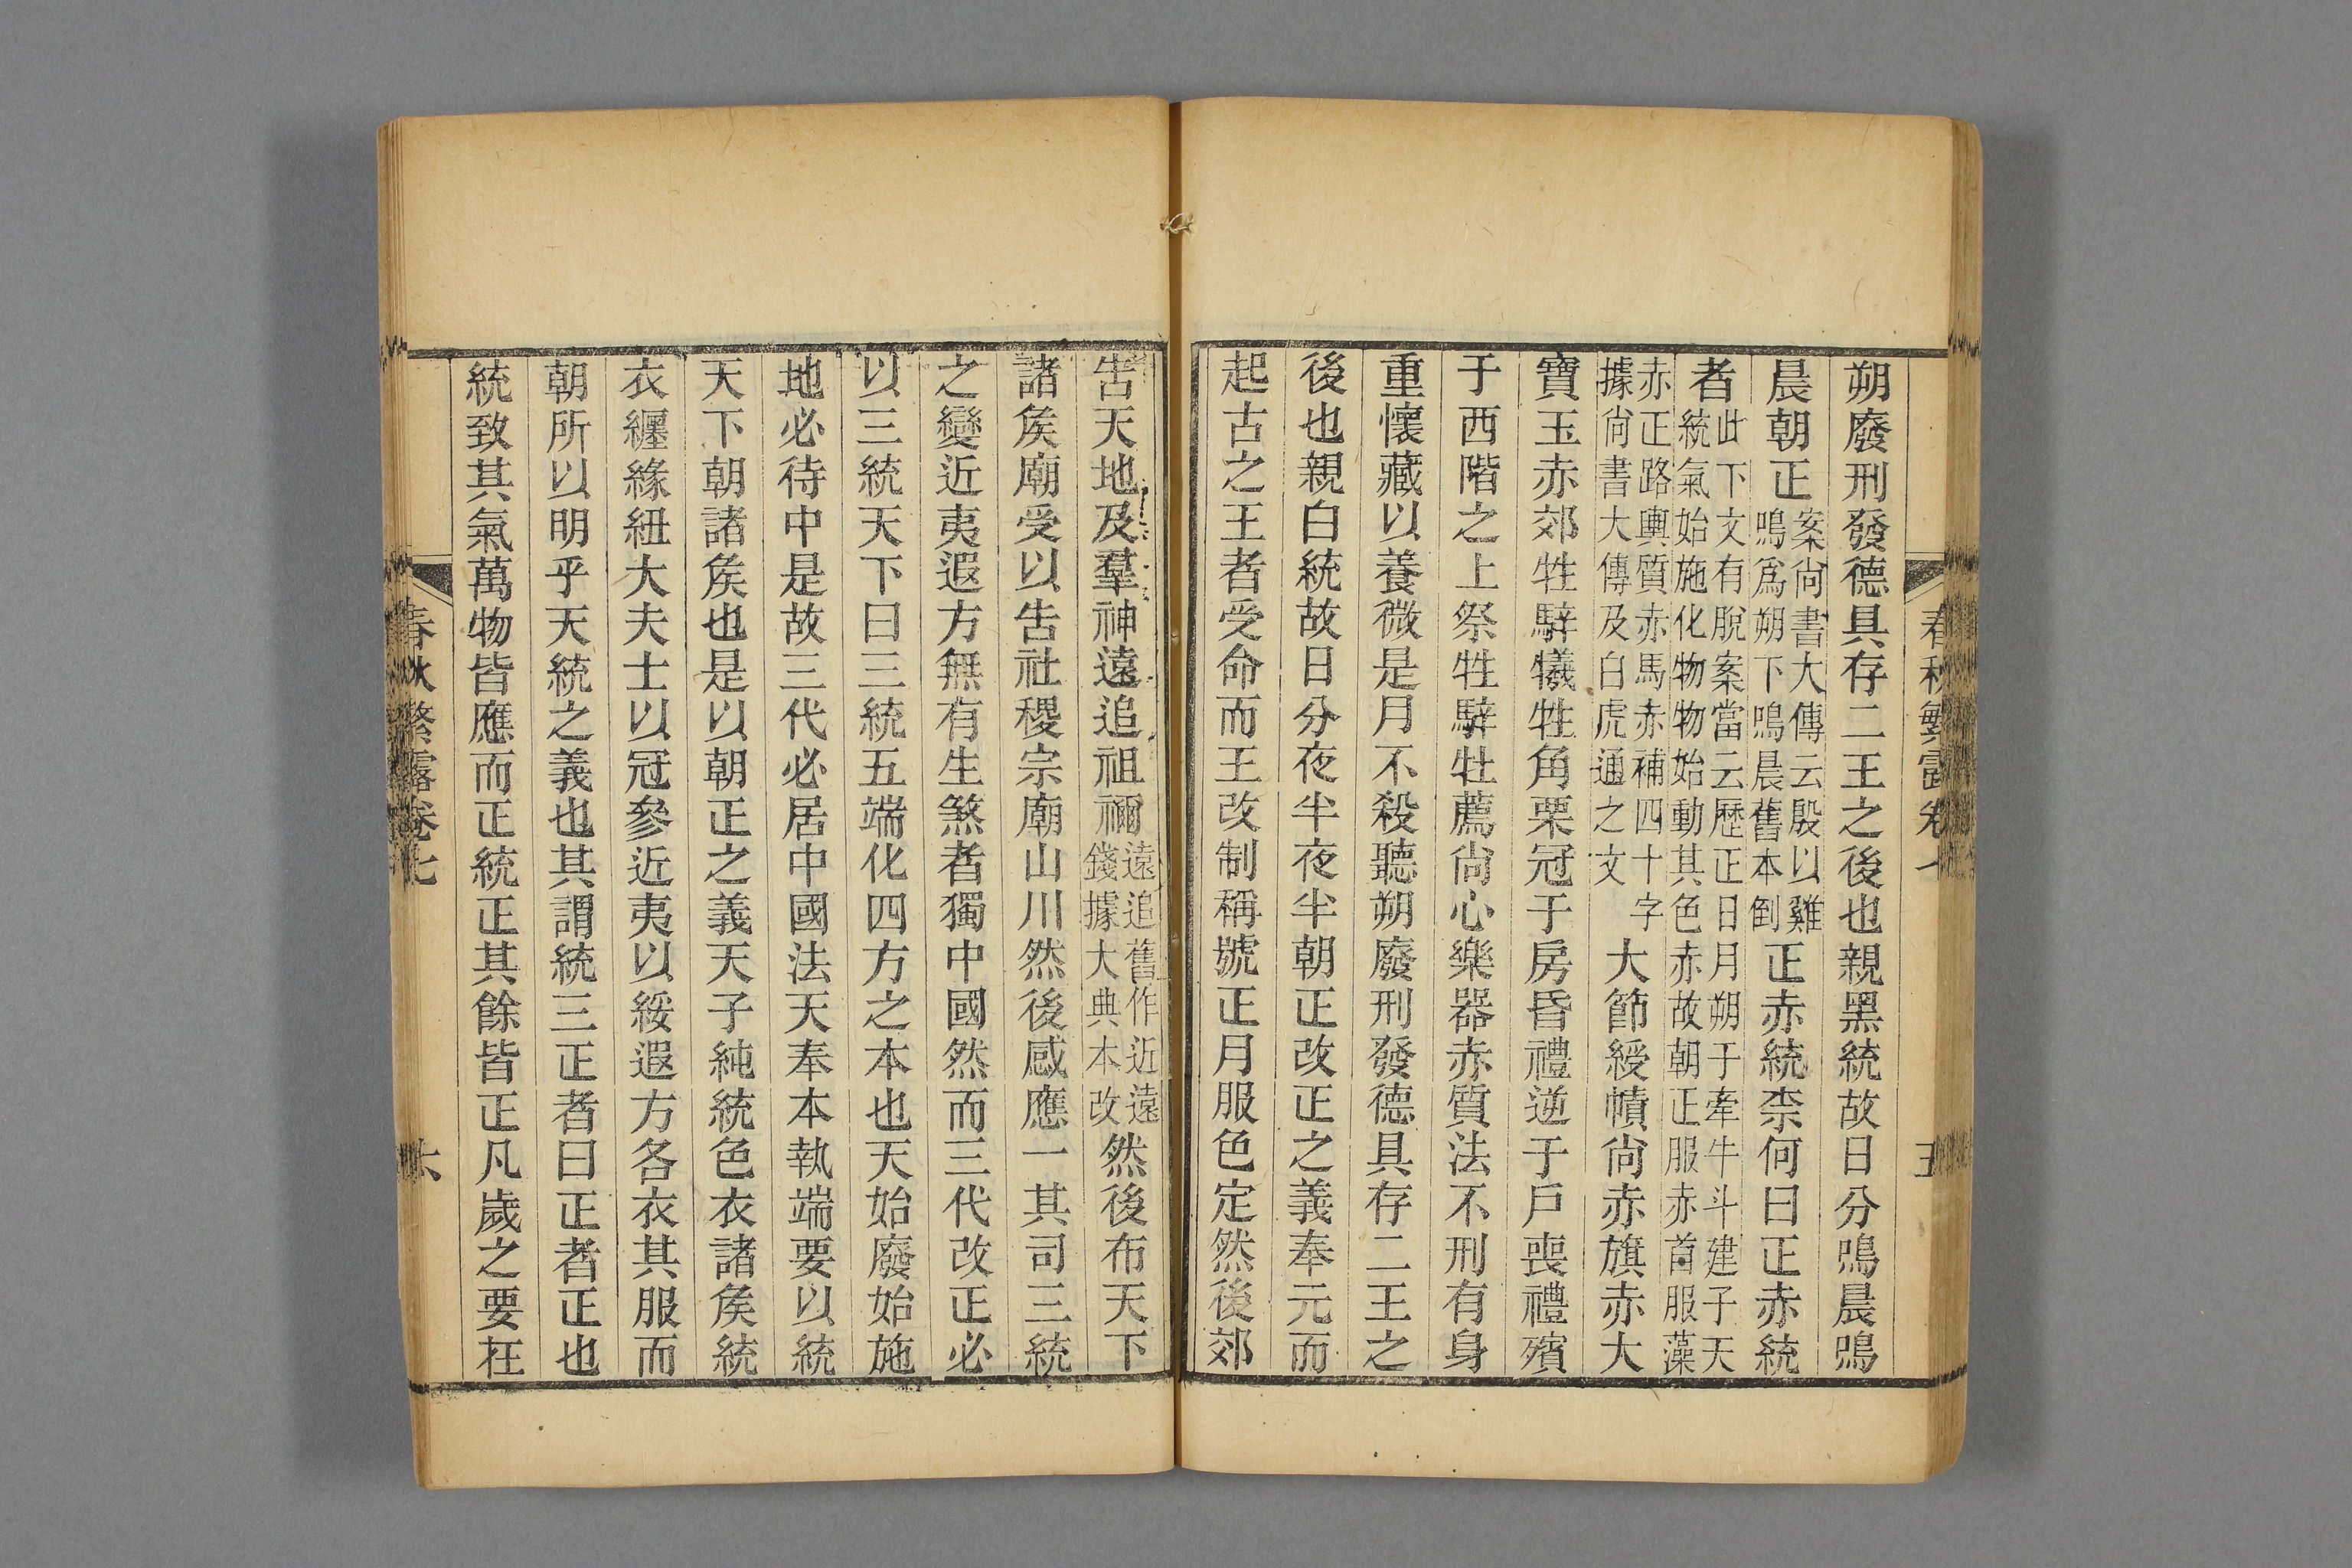 朔廢刑發德具存二王之後也親黑統故日分鳴晨鳴
晨朝正案尚書大傳云殷以雞鳴爲朔下鳴晨舊本倒正赤統柰何曰正赤統
者此下文有脫案當云歷正日月朔于牽牛斗建子天統氣始施化物物始動其色赤故朝正服赤首服藻
赤正路輿質赤馬赤補四十字據尚書大傳及白虎通之文大節綬幘尚赤旗赤大
寶玉赤郊牲騂犧牲角栗冠于房昏禮逆于戶喪禮殯
于西階之上祭牲騂牡薦尚心樂器赤質法不刑有身
重懷藏以養微是月不殺聽朔廢刑發德具存二王之
後也親白統故日分夜半夜半朝正改正之義奉元而
起古之王者受命而王改制稱號正月服色定然後郊
告天地及羣神遠追祖禰遠追舊作近遠錢據大典本改然後布天下
諸矦廟受以告社稷宗廟山川然後感應一其司三統
之變近夷遐方無有生煞者獨中國然而三代改正必
以三統天下曰三統五端化四方之本也天始廢始施
地必待中是故三代必居中國法天奉本執端要以統
天下朝諸矦也是以朝正之義天子純統色衣諸矦統
衣纏緣紐大夫士以冠參近夷以綏遐方各衣其服而
朝所以明乎天統之義也其謂統三正者曰正者正也
統致其氣萬物皆應而正統正其餘皆正凡歲之要在
春秋繁露卷七
六